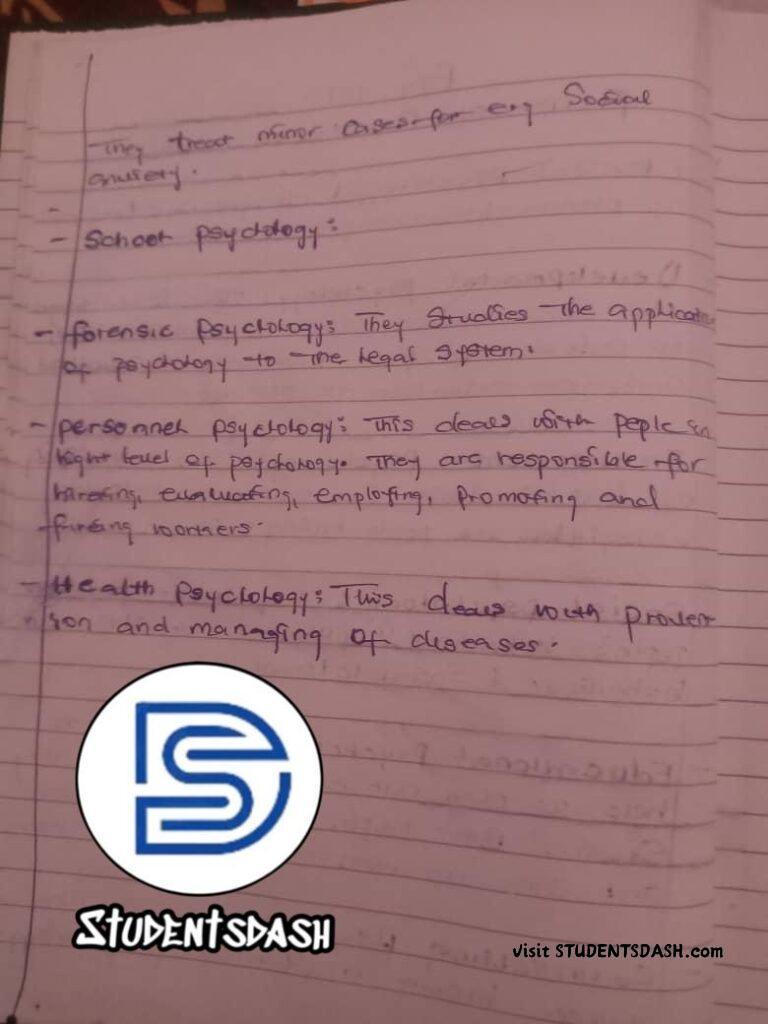 They treat minor cases for e.g Social
anxiety.
-
- School psychology:
- forensic psychology: They Studies The applicat
of psychology to The Legal System.
- personnel psychology: This deals with peple in
hight level of psychology. They are responsible for
hireing, evaluating, employing, promoting and
fireing workers.
- Health psychology: This deals with preven
tion and managing of diseases.
STUDENTSDASH
visit STUDENTSDASH.com